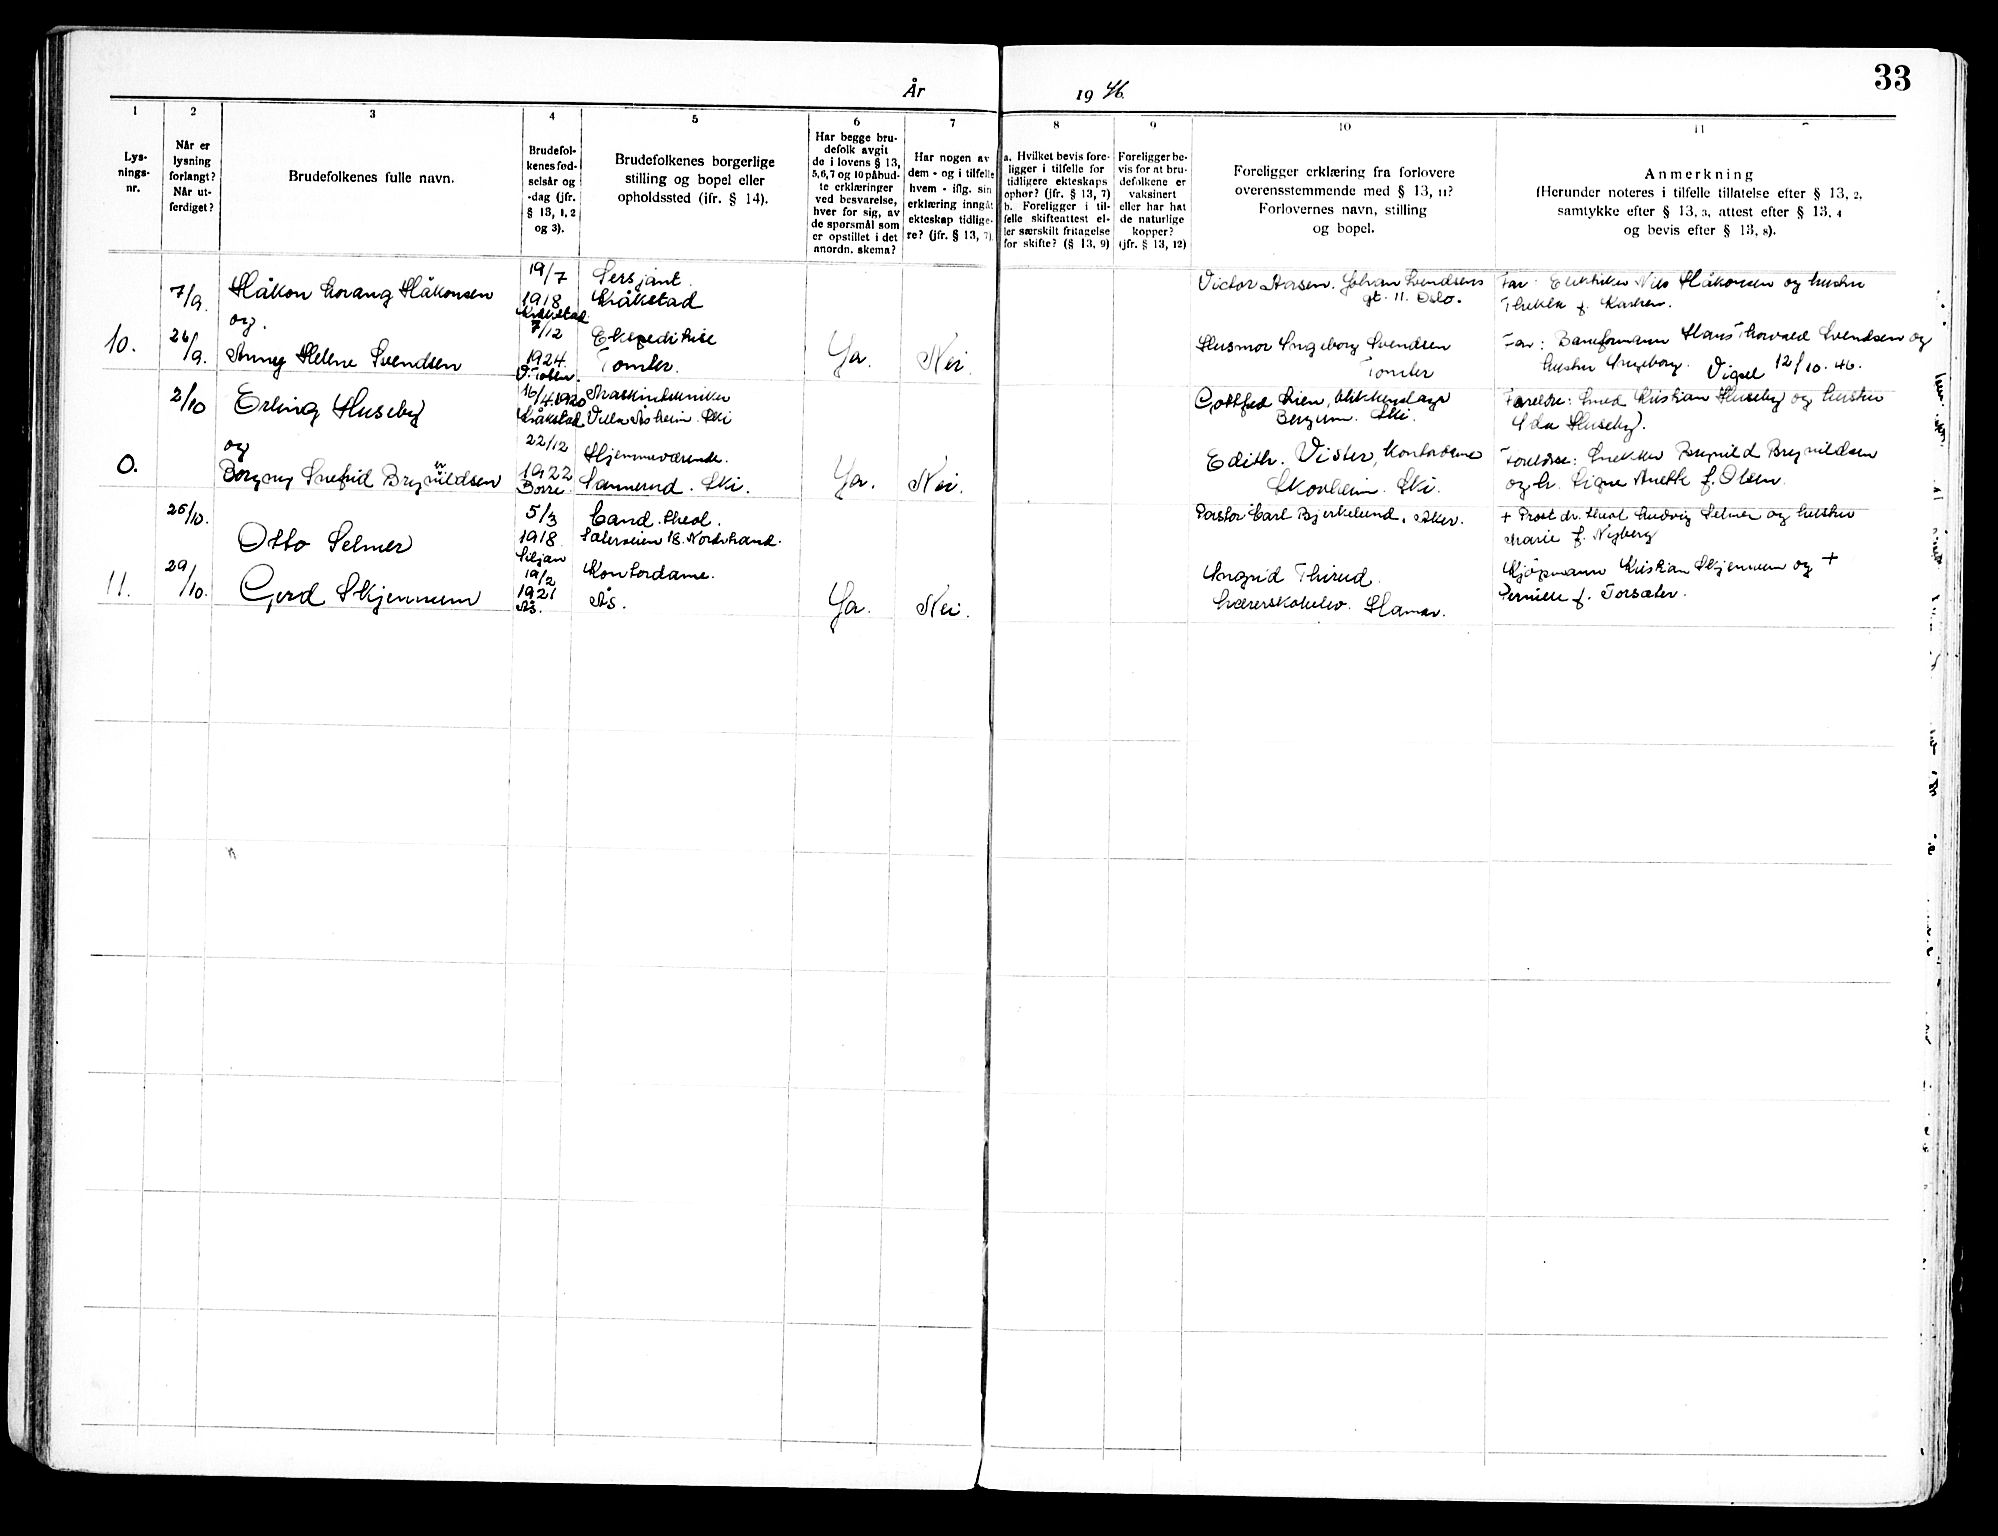 33
År 1946.
1 2 3 4 5 6 7 8 9 10 11
Lys-
nings-
nr.
Når er
lysning
forlangt?
Når ut-
ferdiget?
Brudefolkenes fulle navn.
Brudefol-
kenes fød-
selsår og
-dag (jfr.
§ 13, 1, 2
og 3).
Brudefolkenes borgerlige
stilling og bopel eller
opholdssted (jfr. § 14).
Har begge bru-
defolk avgit
de i lovens § 13,
5,6,7 og 10 påbud-
te erklæringer
ved besvarelse,
hver for sig, av
de spørsmål som
er opstillet i det
anordn. skema?
Har nogen av
dem - og i tilfelle
hvem - iflg. sin
erklæring inngåt
ekteskap tidlige-
re? (jfr. § 13, 7).
a. Hvilket bevis fore-
ligger i tilfelle for
tidligere ekteskaps
ophør? (jfr. § 13, 7)
b. Foreligger i til-
felle skifteattest el-
ler særskilt fritagelse
for skifte? (§ 13, 9)
Foreligger be-
vis for at bru-
defolkene er
vaksinert
eller har hat
de naturlige
kopper?
(jfr. § 13, 12)
Foreligger erklæring fra forlovere
overensstemmende med § 13, 11?
Forlovernes navn, stilling
og bopel.
Anmerkning
(Herunder noteres i tilfelle tillatelse efter § 13, 2,
samtykke efter § 13, 3, attest efter § 13, 4
og bevis efter § 13, 8).
10.
7/9.
26/9.
Håkon Lorang Håkonsen
og
Anny Helene Svendsen
19/7
1918
Kråkstad
7/12
1924.
Sersjant.
Kråkstad
Ekspeditrise
Tomter.
Ja. Nei.
Victor Aasen. Johan Svendsens
gt. 11. Oslo.
Husmor Ingeborg Svendsen
Tomter
Far: Elektriker Nils Håkonsen og hustru
Thekla f.
Far: Baneformann Hans Thorvald Svendsen og
hustru Ingeborg. Vigsel 12/10. 46.
0.
2/10
Erling Huseby
og
Borgny Snefrid Brynildsen
16/4.1920
Kråkstad
22/12
1922
Borre.
Maskintekniker
Villa Åsheim. Ski
Hjemmeværende.
Sannerud. Ski.
Ja. Nei.
Gottfred Lien, blikkenslager
Bergum. Ski.
Edith. Vister, Kontordame
Skovheim. Ski.
Foreldre: Smed Kristian Huseby og hustru
Ida Huseby.
Foreldre: Snekker Brynild Brynildsen
og h. Signe Anette f. Olsen.
11.
26/10.
29/10.
Otto Selmer
Gerd Skjennum
5/3
1918
Siljan
19/2
1921
Ås.
Cand. theol.
18. Nordstrand.
Kontordame.
Ås.
Ja. Nei.
Pastor Carl Bjerkelund. Aker.
Ingrid Thirud.
Lærerskoleelev. Hamar.
+ Prost dr. theol Ludvig Selmer og hustru
Marie f. Nyberg
Kjøpmann Kristian Skjennum og +
Pernille f. Torsæter.